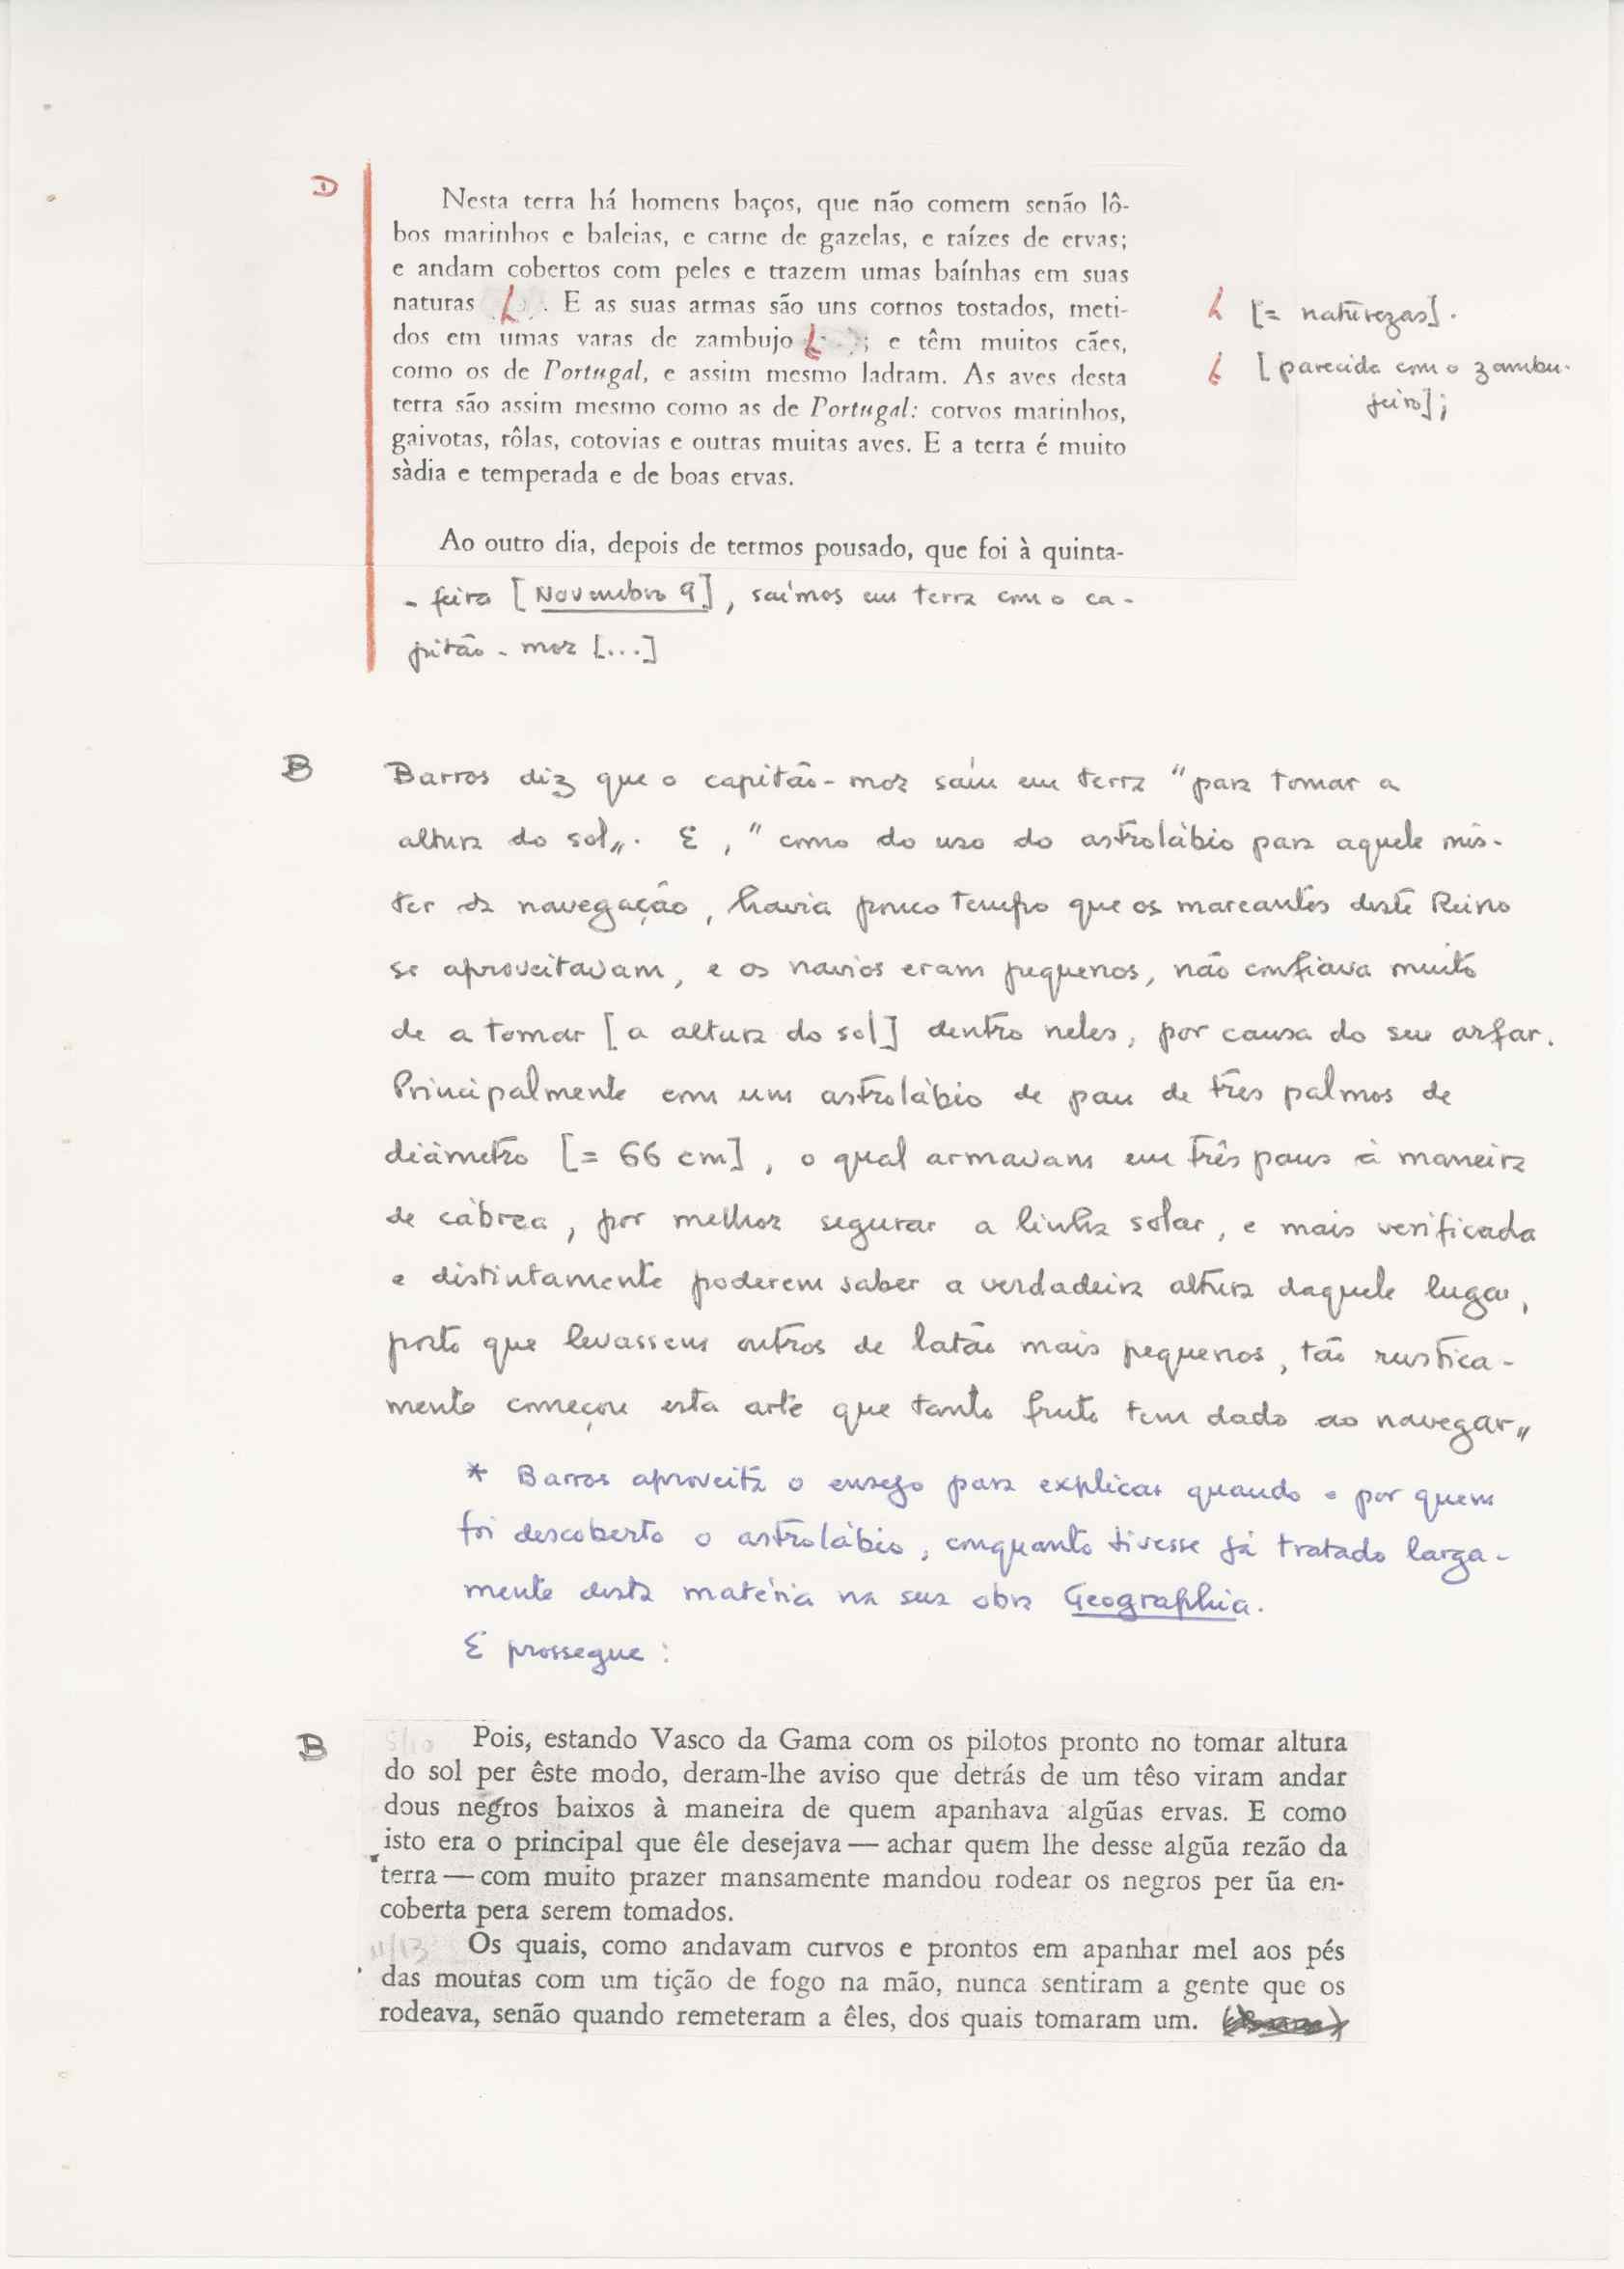 D
Nesta terra há homens baços, que não comem senão lô-
bos marinhos e baleias, e carne de gazelas, e raízes de ervas;
e andam cobertos com peles e trazem umas baínhas em suas
naturas . E as suas armas são uns cornos tostados, meti-
[= naturezas].
dos em umas varas de zambujo ; e têm muitos cães,
[parecida com o zambu-
jeiro];
como os de Portugal, e assim mesmo ladram. As aves desta
terra são assim mesmo como as de Portugal: corvos marinhos,
gaivotas, rôlas, cotovias e outras muitas aves. E a terra é muito
sàdia e temperada e de boas ervas.
Ao outro dia, depois de termos pousado, que foi à quinta-
- feira [Novembro 9], saímos em terra com o ca-
pitão-mor [...]
B
Barros diz que o capitão-mor saíu em terra "para tomar a
altura do sol„. E, "como do uso do astrolábio para aquele mis-
ter da navegação, havia pouco tempo que os mareantes deste Reino
se aproveitavam, e os navios eram pequenos, não confiava muito
de a tomar [a altura do sol] dentro neles, por causa do seu arfar.
Principalmente com um astrolábio de pau de três palmos de
diâmetro [= 66 cm], o qual armavam em três paus à maneira
de cábrea, por melhor segurar a linha solar, e mais verificada
e distintamente poderem saber a verdadeira altura daquele lugar,
posto que levassem outros de latão mais pequenos, tão rustica-
mente começou esta arte que tanto fruto tem dado ao navegar„
* Barros aproveita o ensejo para explicar quando e por quem
foi descoberto o astrolábio, conquanto tivesse já tratado larga-
mente desta matéria na sua obra Geographia.
E prossegue:
B
5/10
Pois, estando Vasco da Gama com os pilotos pronto no tomar altura
do sol per êste modo, deram-lhe aviso que detrás de um têso viram andar
dous negros baixos à maneira de quem apanhava algũas ervas. E como
isto era o principal que êle desejava — achar quem lhe desse algũa rezão da
terra — com muito prazer mansamente mandou rodear os negros per ũa en-
coberta pera serem tomados.
11/13
Os quais, como andavam curvos e prontos em apanhar mel aos pés
das moutas com um tição de fogo na mão, nunca sentiram a gente que os
rodeava, senão quando remeteram a êles, dos quais tomaram um.